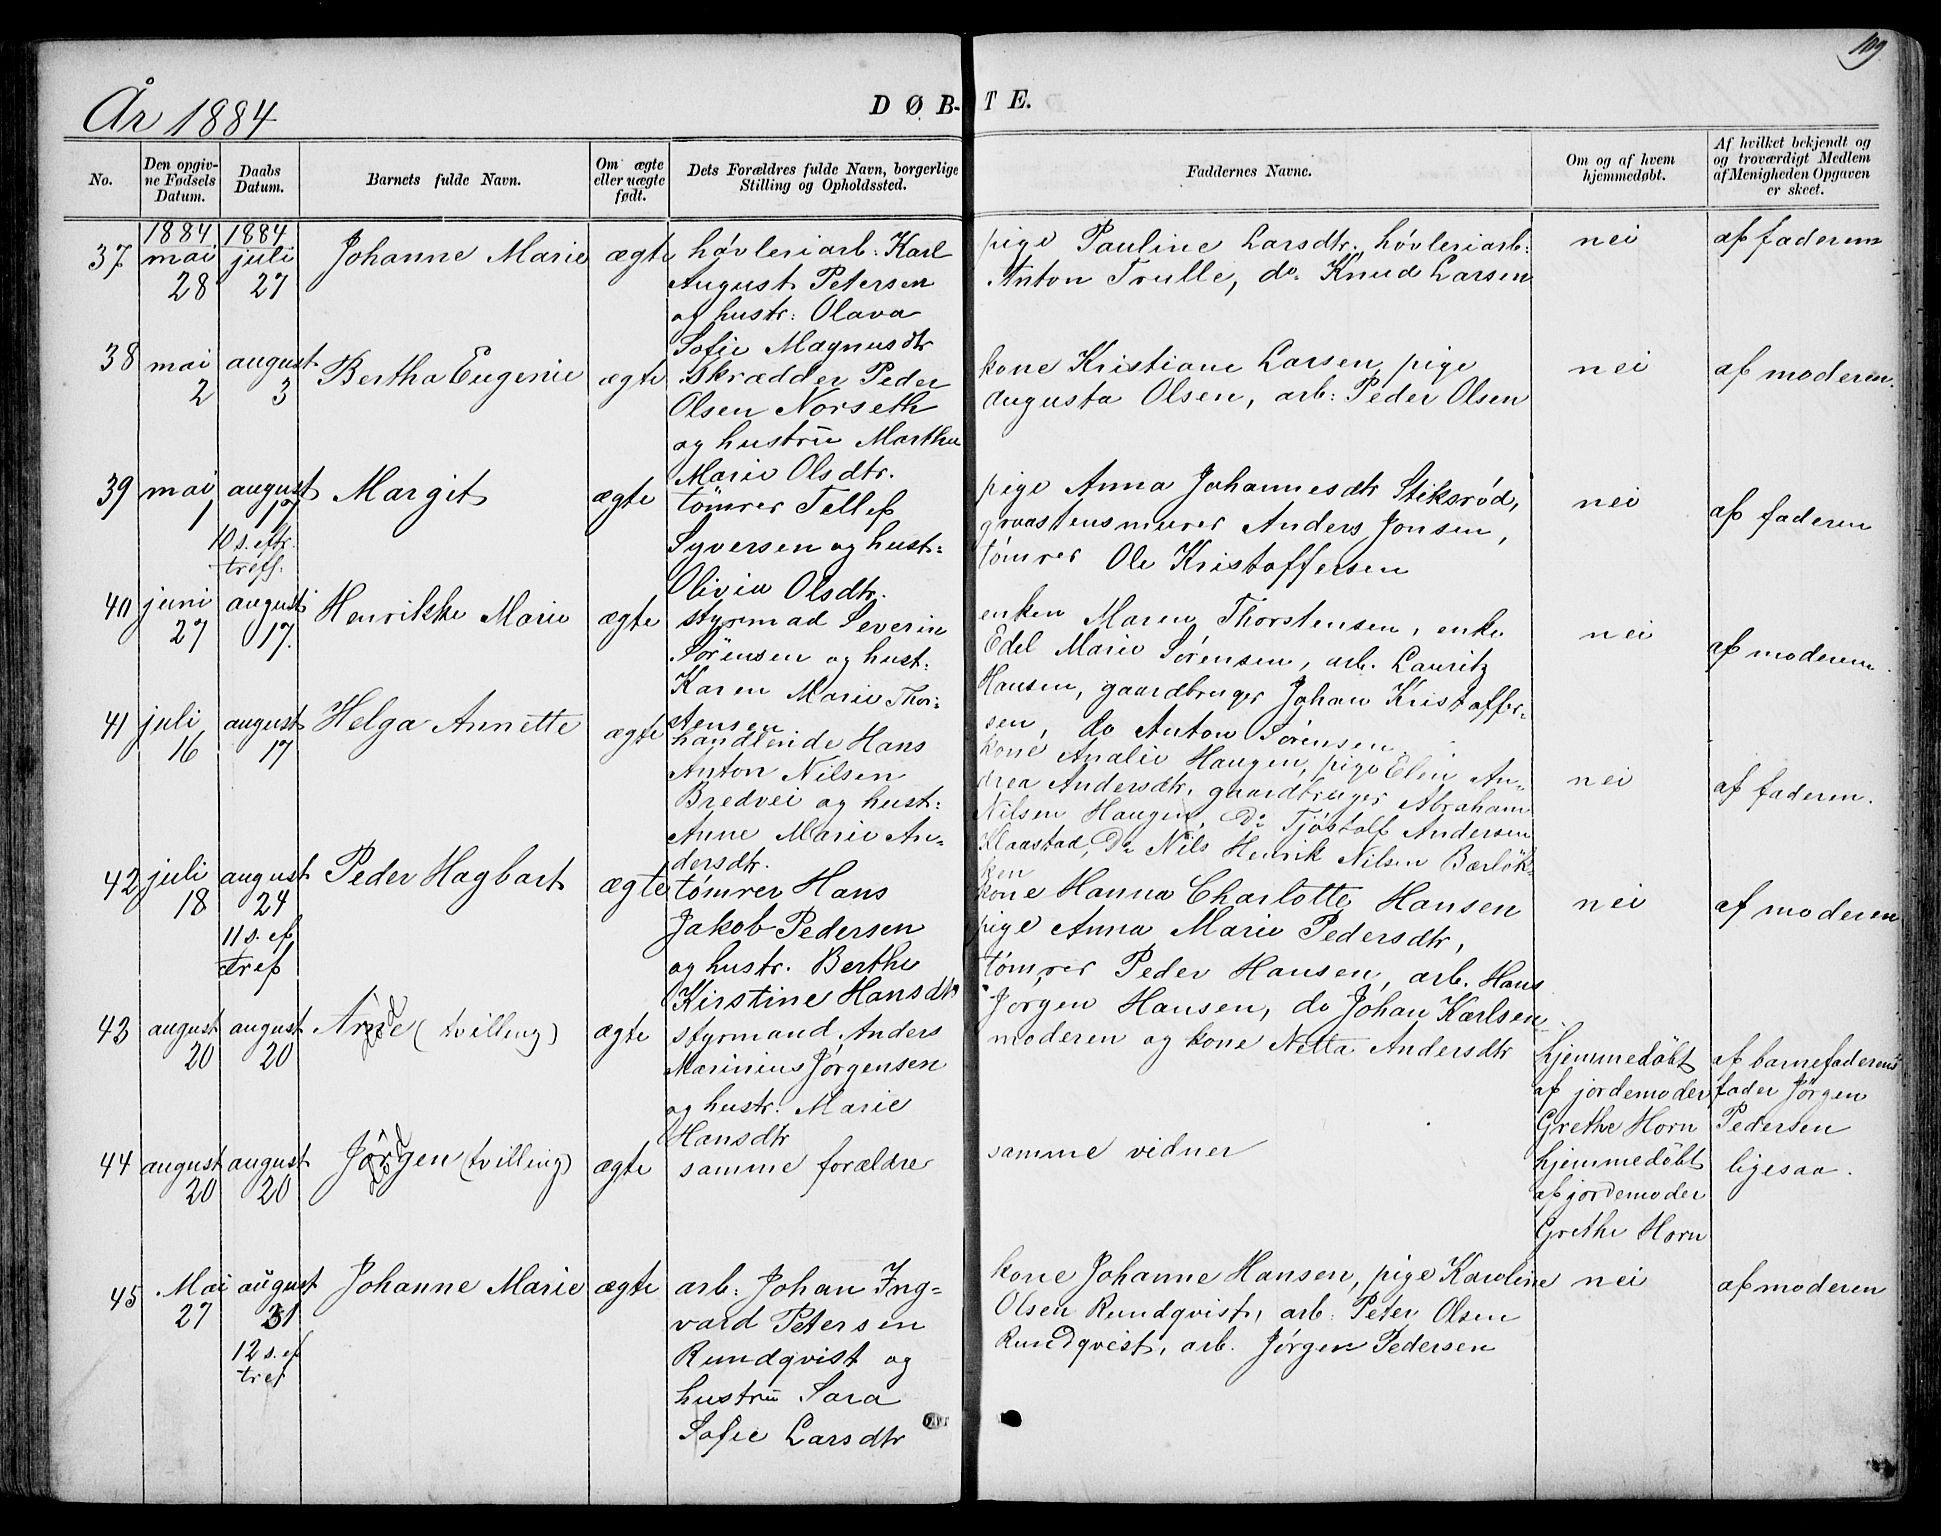 109
År 1884
DØB-TE.
No.
Den opgiv-
ne Fødsels
Datum.
Daabs
Datum.
Barnets fulde Navn.
Om ægte
eller uægte
født.
Dets Forældres fulde Navn, borgerlige
Stilling og Opholdssted.
Faddernes Navne.
Om og af hvem
hjemmedøbt.
Af hvilket bekjendt og
og troværdigt Medlem
af Menigheden Opgaven
er skeet.
37
1884
mai
28
1884
juli
27
Johanne Marie
ægte
høvleriarb: Karl
August Petersen
og hustr: Olava
Sofie Magnusdtr
pige Pauline Larsdtr, høvleriarb:
Anton Trulle, do. Knud Larsen
nei
af faderen
38
mai
2
august
3
Bertha Eugenie
ægte
skrædder Peder
Olsen Norseth
og hustru Martha
Marie Olsdtr.
kone Kristiane Larsen, pige
Augusta Olsen, arb: Peder Olsen
nei
af moderen.
39
mai
1
august
17
10 s. eftr.
tref.
Margit
ægte
tømrer Tellef
Syversen og hust:
Olivia Olsdtr.
pige Anna Johannesdtr Stiksrød,
graastensmurer Anders Jonsen,
tømrer Ole Kristoffersen
nei
af faderen
40
juni
27
august
17.
Henrikke Marie
ægte
styrmad Severin
Sørensen og hust:
Karen Marie Thor-
stensen
enken Maren Thorstensen, enke
Edel Marie Sørensen, arb. Lauritz
Hansen, gaardbruger Johan Kristoffer-
sen, do Anton Sørensen.
nei
af moderen.
41
juli
16
august
17
Helga Annette
ægte
handlende Hans
Anton Nilsen
Bredvei og hust:
Anne Marie An-
dersdtr.
kone Analie Haugen, pige Elen An-
drea Andersdtr, gaardbruger Abraham
Nilsen Haugen, Do Tjøstolf Andersen
Klaastad, Do Nils Henrik Nilsen Bærløk-
ken
nei
af faderen.
42
juli
18
august
24
11 s. ef
tref
Peder Hagbart
ægte
tømrer Hans
Jakob Pedersen
og hustr. Berthe
Kirstine Hansdtr
kone Hanna Charlotte Hansen
pige Anna Marie Pedersdtr,
tømrer Peder Hansen, arb. Hans
Jørgen Hansen, do Johan Karlsen.
nei
af moderen
43
august
20
august
20
Arne (tvilling)
død
ægte
styrmand Anders
Marinius Jørgensen
og hustr: Marie
Hansdtr
moderen og kone Netta Andersdtr
hjemmedøbt
af jordemoder
Grethe Horn
af barnefaderens
fader Jørgen
Pedersen
44
august
20
august
20
Jørgen (tvilling)
død
ægte
samme forældre
samme vidner
hjemmedøbt
af jordemoder
Grethe Horn
ligesaa.
45
Mai
27
august
31
12 s. ef
tref
Johanne Marie
ægte
arb: Johan Ing-
vald Petersen
Rundqvist og
hustru Sara
Sofie Larsdtr
kone Johanne Hansen, pige Karoline
Olsen Rundqvist, arb: Peter Olsen
Rundqvist, arb. Jørgen Pedersen
nei
af moderen